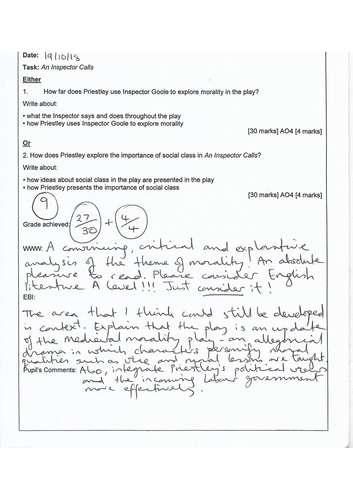 Date: 19/10/18
Task: An Inspector Calls
Either
1. How far does Priestley use Inspector Goole to explore morality in the play?
Write about:
• what the Inspector says and does throughout the play
• how Priestley uses Inspector Goole to explore morality
[30 marks] AO4 [4 marks]
Or
2. How does Priestley explore the importance of social class in An Inspector Calls?
Write about:
• how ideas about social class in the play are presented in the play
• how Priestley presents the importance of social class
[30 marks] AO4 [4 marks]
9
Grade achieved: 27/30 + 4/4
WWW: A convincing, critical and explorative
analysis of the theme of morality! An absolute
pleasure to read. Please consider English
literature A level!!! Just consider it!
EBI:
The area that I think could still be developed
is context. Explain that the play is an update
of the medieval morality play - an allegorical
drama in which characters personify moral
qualities such as vice and moral lessons are taught.
Pupil's Comments: Also, integrate Priestley's political views
and the incoming Labour government
more effectively.